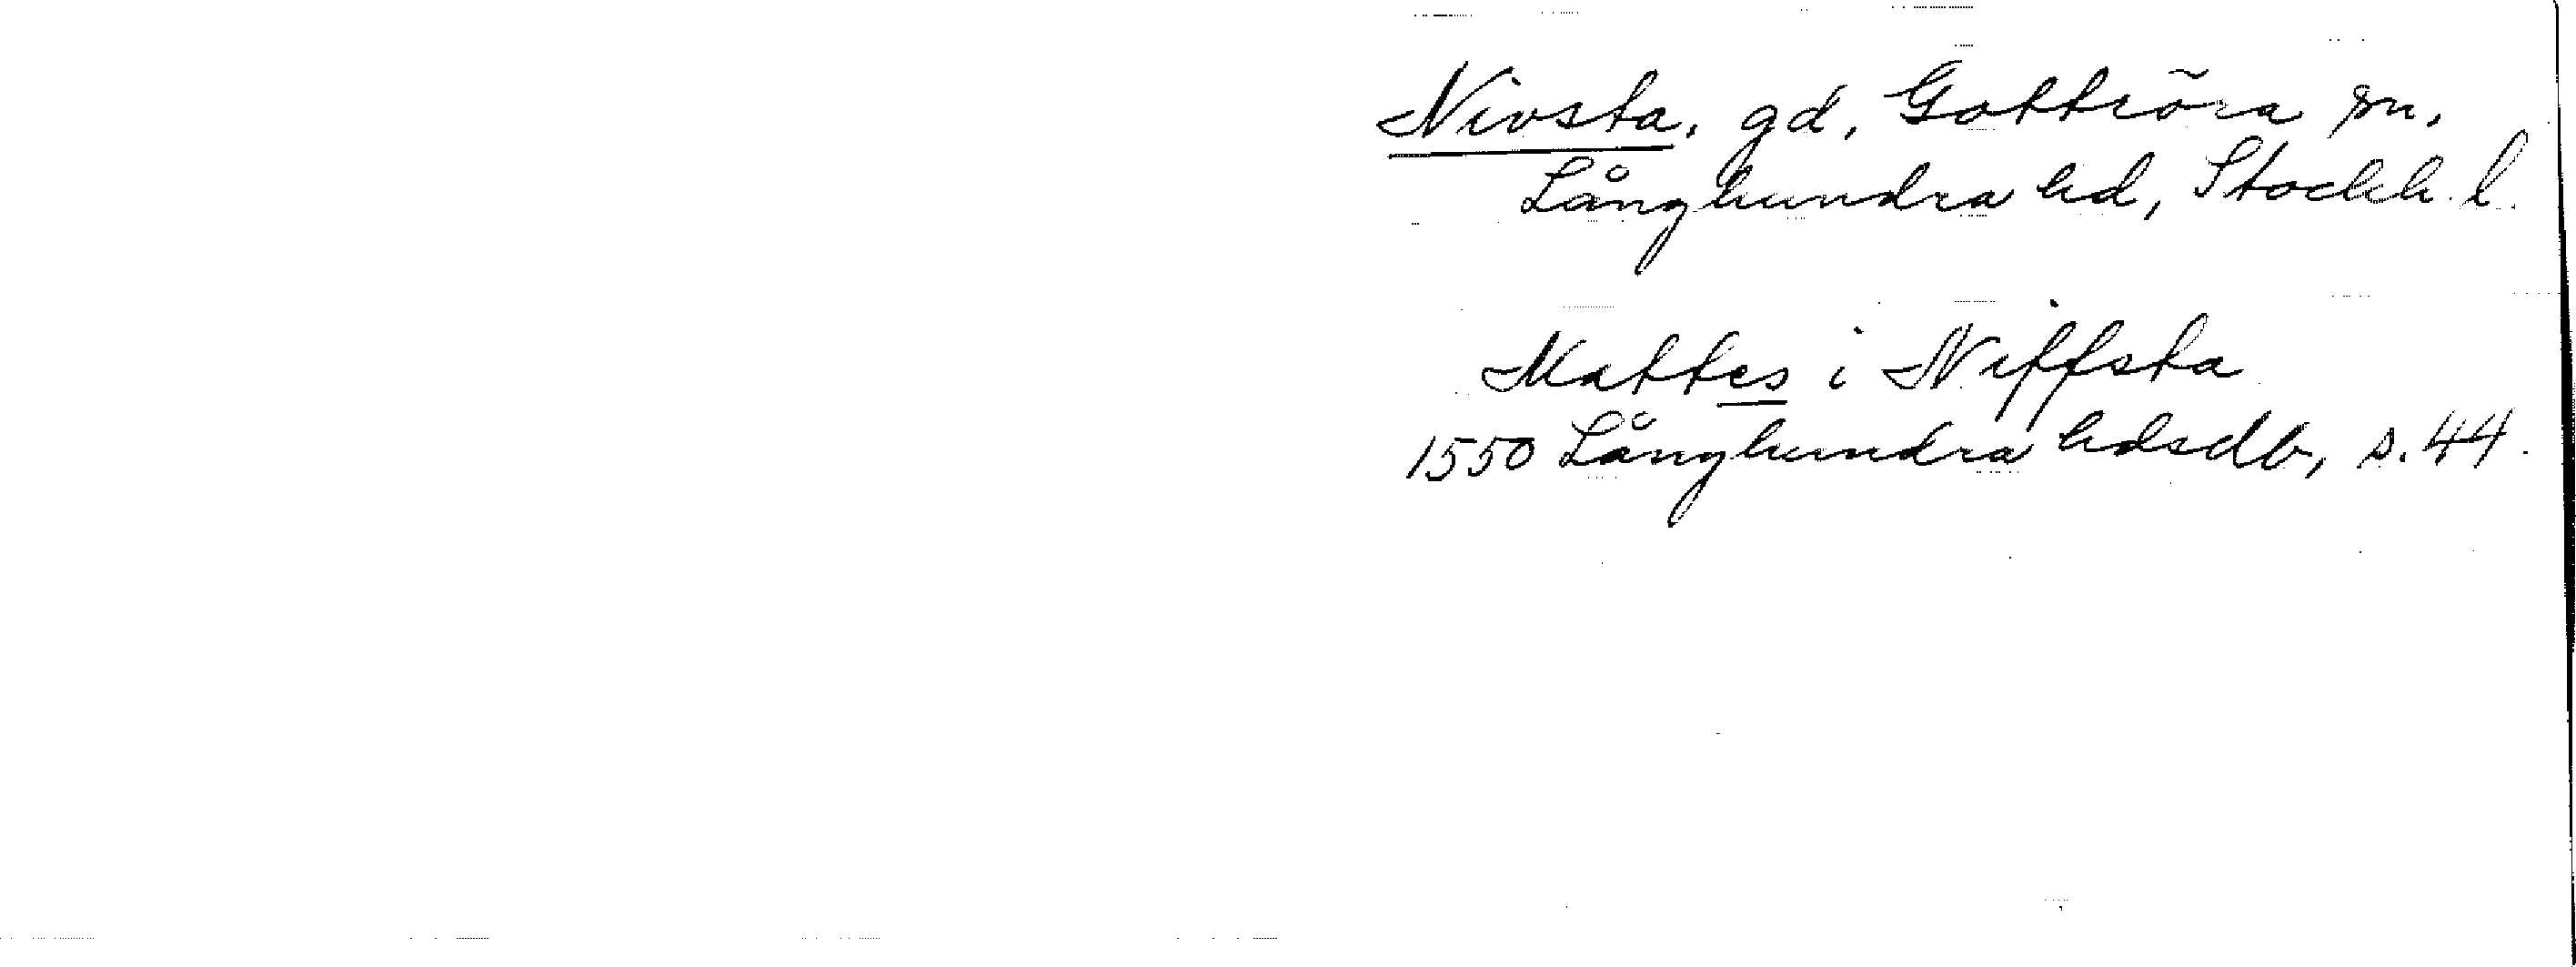 Nivsta, gd, Gottröra sn,
Långhundra hd, Stockh. l.
Mattes i Niffsta
1550 Långhundra hdsdb, s. 44.